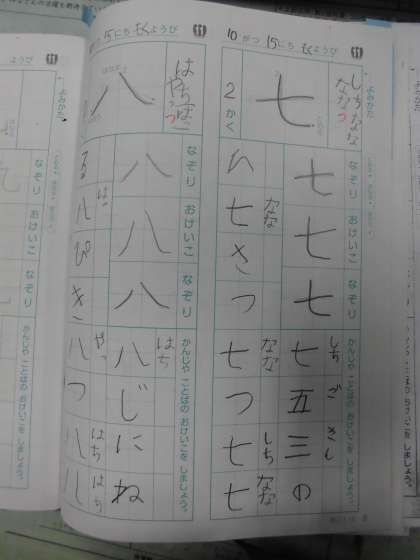 10がつ 15にち もくようび
よみかた
しち
なな
なな
なな
つ
七
2かく
なぞり おけいこ なぞり
七
七
七
ひ
七
なな
き
つ
かんじや ことばの おけいこを しましょう。
七五三の
しち ご さん
七つ七七
なな
しち
なな
15にち もくようび
よみかた
はち
やっ
つ
八
なぞり おけいこ なぞり
八
八
八
る
八
はっ
ぴ
き
かんじや ことばの おけいこを しましょう。
八じにね
はち
八つ八八
やっ
はち
はち
ようび
よみかた
なぞり おけいこ なぞり
かんじや ことばの おけいこを しましょう。